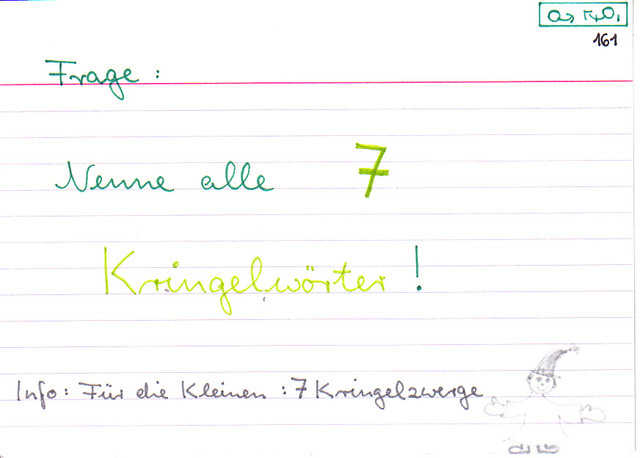 161
Frage:
Nenne alle 7
Kringelwörter!
Info: Für die Kleinen: 7 Kringelzwerge